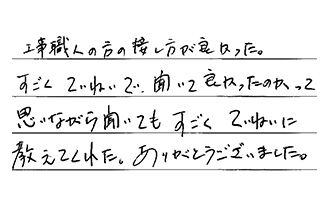 工事職人の方の接し方が良かった。
すごくていねいで、聞いて良かったのかって
思いながら聞いてもすごくていねいに
教えてくれた。ありがとうございました。